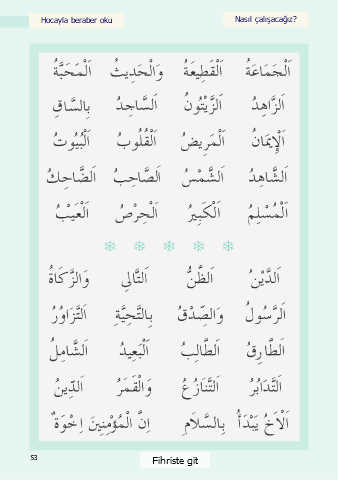 Hocayla beraber oku
Nasıl çalışacağız?
اَلْجَمَاعَةُ اَلْقَطِيعَةُ وَالْحَدِيثُ اَلْمَحَبَّةُ
اَلزَّاهِدُ اَلزَّيْتُونُ اَلسَّاجِدُ بِالسَّاقِ
اَلْإِيمَانُ اَلْمَرِيضُ اَلْقُلُوبُ اَلْبُيُوتُ
اَلشَّاهِدُ اَلشَّمْسُ اَلصَّاحِبُ اَلضَّاحِكُ
اَلْمُسْلِمُ اَلْكَبِيرُ اَلْحِرْصُ اَلْعَيْبُ
اَلدَّيْنُ اَلظَّنُّ اَلتَّالِى وَالزَّكَاةُ
اَلرَّسُولُ وَالصِّدْقُ بِالتَّحِيَّةِ اَلتَّزَاوُرُ
اَلطَّارِقُ اَلطَّالِبُ اَلْبَعِيدُ اَلشَّامِلُ
اَلتَّدَابُرُ اَلتَّنَازُعُ وَالْقَمَرُ اَلدِّينُ
اَلْاَخُ يَبْدَأُ بِالسَّلَامِ اِنَّ الْمُؤْمِنِينَ اِخْوَةٌ
53
Fihriste git